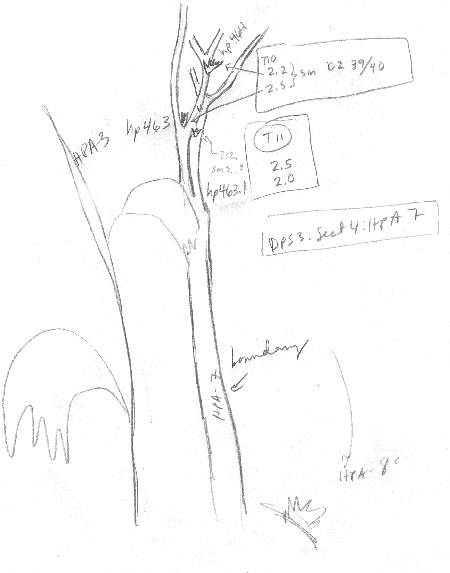 hp464
T10
2.2 } sm 102 39/40
2.5
hp463
HPA-3
T11
2.5
2.0
hp463.1
DPS3: Sect 4: HPA 7
boundary
HPA-7
HPA-8